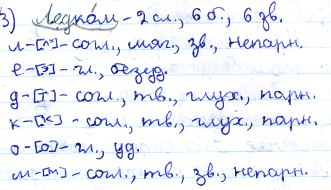 3) Ледко́м – 2 сл., 6 б., 6 зв.
л – [л'] – согл., мяг., зв., непарн.
е – [э] – гл., безуд.
д – [т] – согл., тв., глух., парн.
к – [к] – согл., тв., глух., парн.
о – [о] – гл., уд.
м – [м] – согл., тв., зв., непарн.